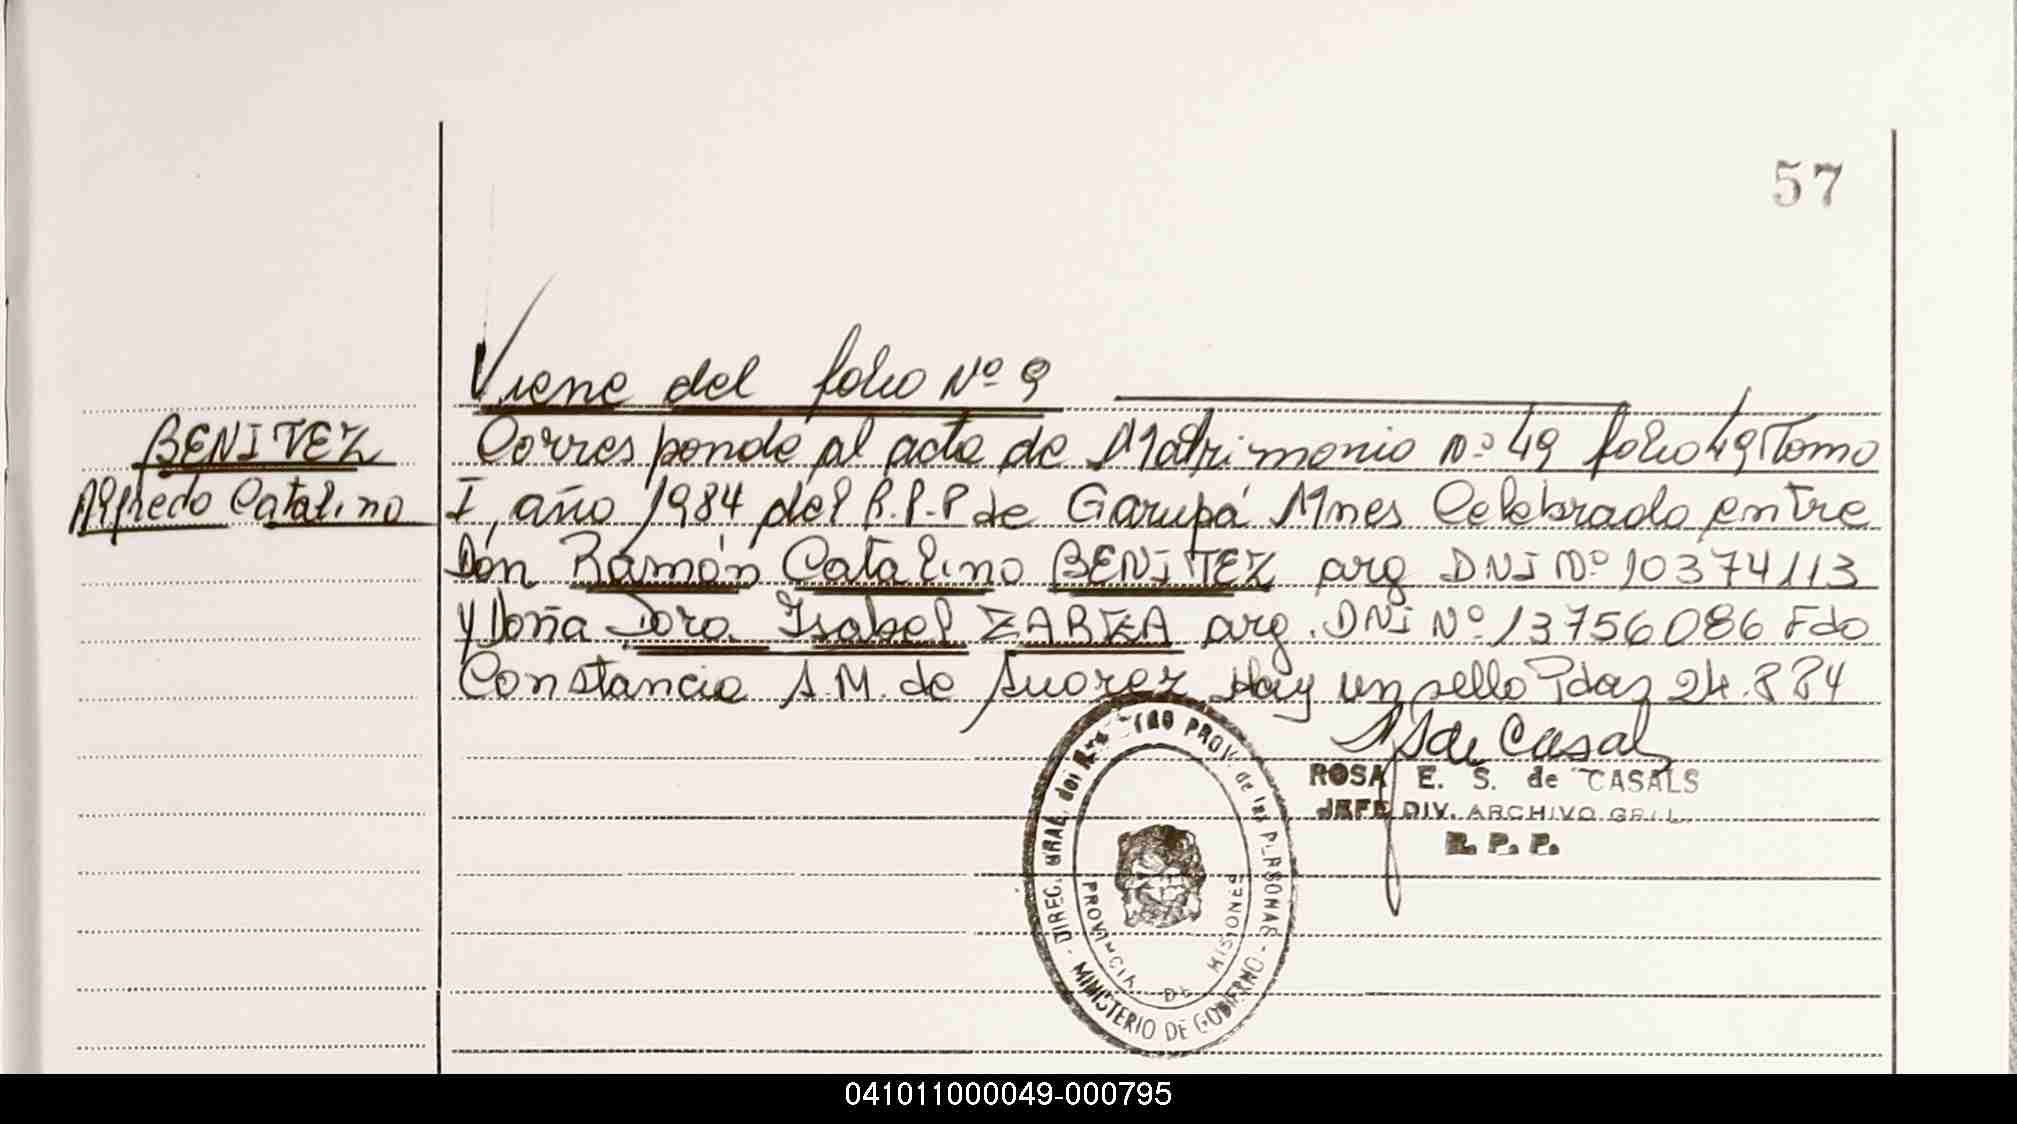 57
Viene del folio Nº 9
BENITEZ
Alfredo Catalino
Corresponde al acta de Matrimonio Nº 49 folio 49 Tomo
I, año 1984 del R.P.P de Garupá Mnes Celebrado entre
Don Ramón Catalino BENITEZ arg DNI Nº 10374113
y Doña Dora Isabel ZARZA arg. DNI Nº 13756086 Fdo
Constancia A.M. de Suarez Hay un sello Pdas 24.884
ROSA E. S. de CASALS
JEFE DIV. ARCHIVO GRAL.
R. P. P.
DIREC. GRAL. del PROV. de las PERSONAS - MINISTERIO DE GOBIERNO -
PROVINCIA DE MISIONES
041011000049-000795